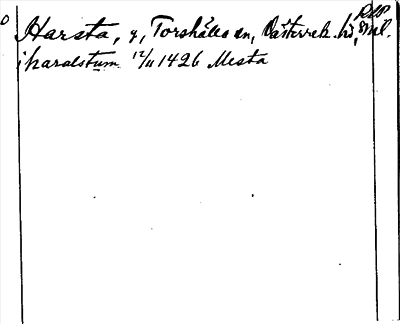 RAP
Harsta, g, Torshälla sn, Västerrek. hd, Sml.
i haralstum 12/11 1426 Mesta